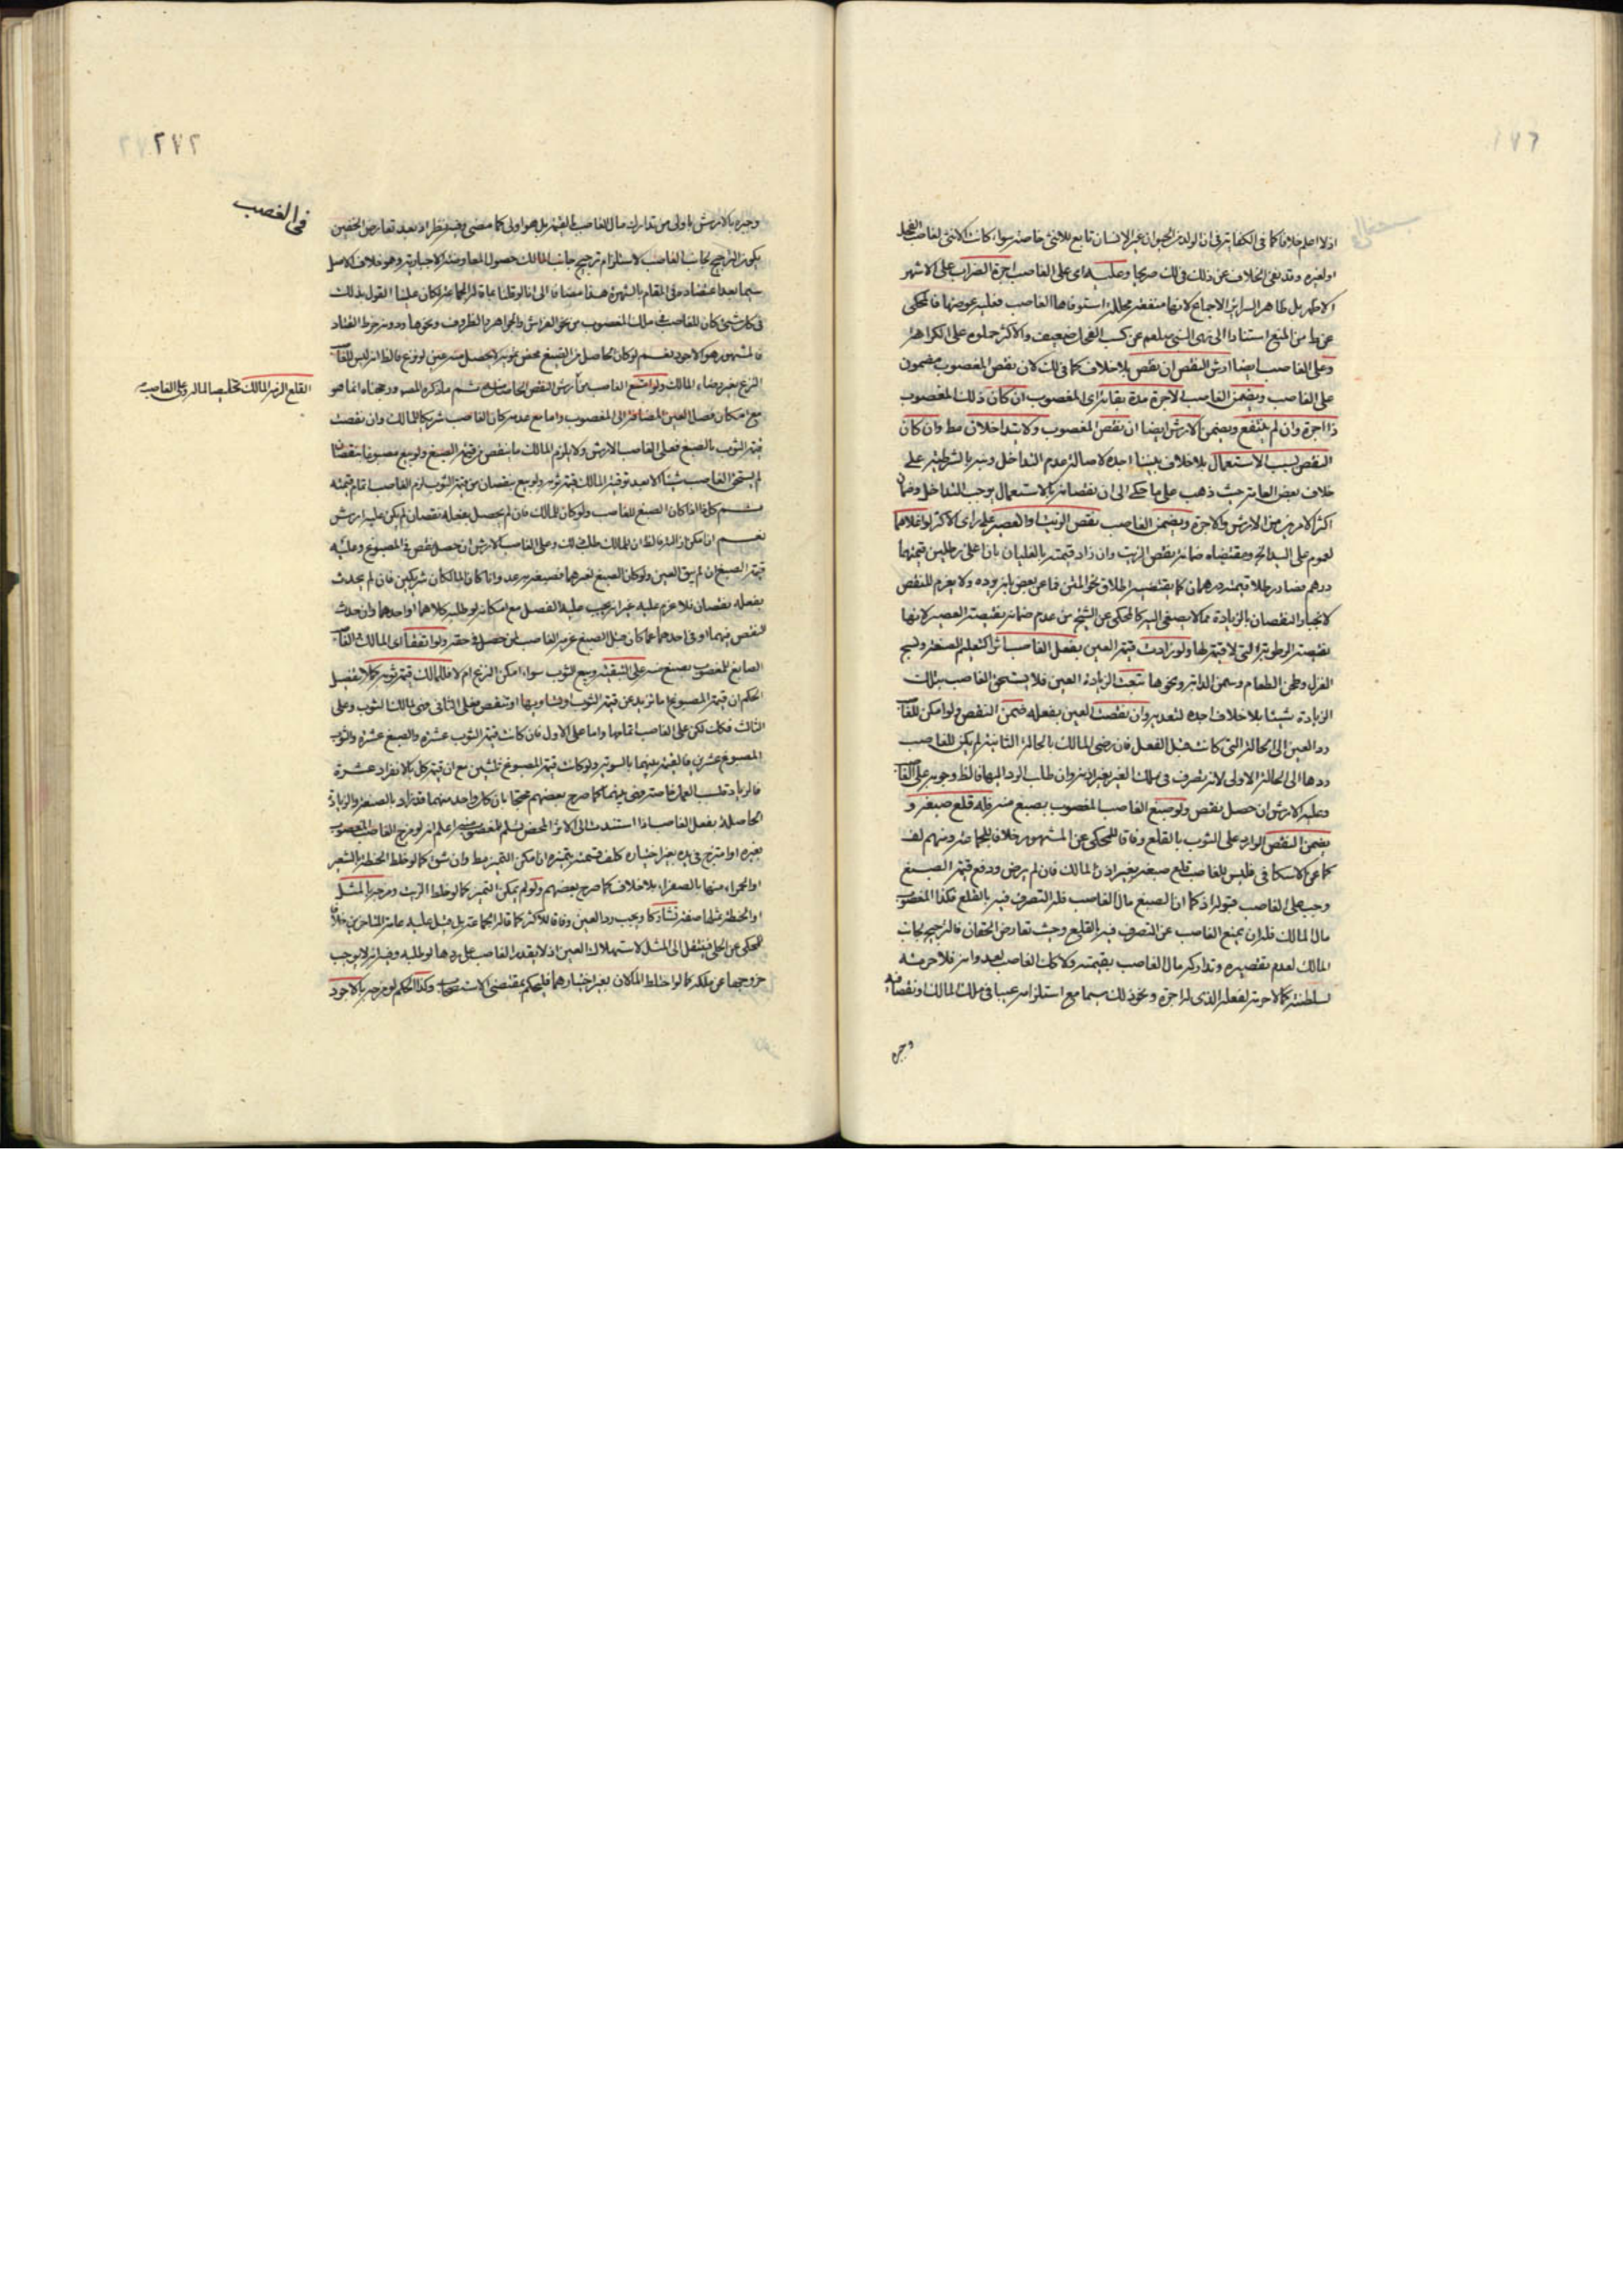 ١٧٦
اذ لا اجد خلافا كما في الكفاية في ان الولد من الحيوان غير الانسان تابع للانثى خاصة سواء كانت الانثى لغاصب الفحل
او لغيره وقد نفى الخلاف عن ذلك صريحا وعليه اى على الغاصب اجرة الضراب على الاشهر
الاظهر بل ظاهر السرائر الاجماع لانها منفعة محللة استوفاها الغاصب فعليه عوضها فالمحكى
عن ط من المنع استنادا الى نهى النبى صلعم عن كسب الفحل ضعيف والاكثر حملوه على الكراهة
وعلى الغاصب ايضا ارش النقص ان نقص بلا خلاف كما في لك لان نقص المغصوب مضمون
على الغاصب ويضمن الغاصب الاجرة مدة بقائه اى المغصوب ان كان ذلك المغصوب
ذا اجرة وان لم ينتفع ويضمن الارش ايضا ان نقص المغصوب ولا يتداخلان مط وان كان
النقص بسبب الاستعمال بلا خلاف بيننا اجده لاصالة عدم التداخل
خلاف بعض العامة حيث ذهب على ما حكى الى ان نقصانه بالاستعمال يوجب التداخل وضمان
اكثر الامرين من الارش والاجرة ويضمن الغاصب نقص الزيت والعصير على راى الاكثر لو اغلاهما
لعموم على اليد الخ ومقتضاه ضمانه بنقص الزيت وان زاد قيمته بالغليان بان اغلى رطلين قيمتهما
درهم فصار رطلا قيمته درهمان كما يقتضيه اطلاق نحو المتن
لانجبار النقصان بالزيادة مما لا يصغى اليه كالمحكى عن الشيخ من عدم ضمانه نقيصة العصير لانها
نقيصة الرطوبة التى لا قيمة لها ولو زادت قيمة العين بفعل الغاصب اثرا كتعليم الصنعة ونسج
الغزل وطحن الطعام وسمن الدابة ونحوها تبعت الزيادة العين فلا يستحق الغاصب بتلك
الزيادة شيئا بلا خلاف اجده لتعديه وان نقصت العين بفعله ضمن النقص ولو امكن للغا
رد العين الى الحالة التى كانت قبل الفعل فان رضى المالك بالحالة الثانية لم يكن للغاصب
ردها الى الحالة الاولى لانه تصرف فى ملك الغير بغير اذنه وان طلب الرد اليها فالظ وجوبه على الغا
وعليه الارش ان حصل نقص ولو صبغ الغاصب المغصوب بصبغ منه فله قلع صبغه و
يضمن النقص الوارد على الثوب بالقلع وفاقا للمحكى عن المشهور خلافا لجماعة ومنهم لف
كما عن الاسكافى فليس للغاصب قلع صبغه بغير اذن المالك فان لم يرض ودفع قيمة الصبغ
وجب على الغاصب قبوله اذ كما ان الصبغ مال الغاصب فله التصرف فيه بالقلع فكذا المغصوب
مال المالك فله ان يمنع الغاصب عن التصرف فيه بالقلع وحيث تعارض الحقان فالترجيح لجانب
المالك لعدم تقصيره وتدارك مال الغاصب بقيمته ولا كذلك الغاصب لعدوانه فلا حرمة
لسلطنته كما لا حرمة لفعله الذى له اجرة ونحو ذلك سيما مع استلزامه عيبا فى ملك المالك ونقصانه
وجبره
٢٧٢
في الغصب
وجبره بالارش باولى من تدارك مال الغاصب بالقيمة بل هو اولى كما مضى وفيه نظر اذ بعد تعارض الحقين
يكون الترجيح لجانب الغاصب لاستلزام ترجيح جانب المالك حصول المعاوضة الاجبارية وهو خلاف الاصل
سيما بعد اعتضاده فى المقام بالشهرة هذا مضافا الى انا لو قلنا بما قاله الجماعة لكان علينا القول بذلك
فى كل شىء كان للغاصب فى ملك المغصوب من نحو الفراش والجواهر والظروف ونحوها ودونه خرط القتاد
فالمشهور هو الاجود نعم لو كان الحاصل من الصبغ محض تمويه لا يحصل منه عين لو نزع فالظ انه ليس للغا
النزع بغير رضاء المالك ولو امتنع الغاصب من ثم ما ذكره المص ورجحناه انما هو
القلع الزمه المالك تخليصا لماله وعلى الغاصب
مع امكان فصل العين المضافة الى المغصوب واما مع عدمه كان الغاصب شريكا للمالك وان نقصت
قيمة الثوب بالصبغ فعلى الغاصب الارش ولا يلزم المالك ما ينقص من قيمة الصبغ ولو بيع مصبوغا بنقصان
لم يستحق الغاصب شيئا الا بعد توفية المالك قيمة ثوبه ولو بيع بنقصان من قيمة الثوب لزم الغاصب اتمام قيمته
ثم كل ذا اذا كان الصبغ للغاصب ولو كان للمالك فان لم يحصل بفعله نقصان لم يكن عليه ارش
نعم ان امكن ازالته فالظ ان للمالك طلب ذلك وعلى الغاصب الارش ان حصل نقص فى المصبوغ وعليه
قيمة الصبغ ان لم يبق العين ولو كان الصبغ لغيرهما فصبغه كانا المالكان شريكين فان لم يحدث
بفعله نقصان فلا غرم عليه غير انه يجب عليه الفصل مع امكانه لو طلبه كلاهما او احدهما وان حدث
النقص فيهما او فى احدهما عما كان قبل الصبغ غرمه الغاصب لمن حصل فى حقه ولو اتفقا اى المالك والغا
الصابغ للمغصوب بصبغ منه على التبقية وبيع الثوب سواء امكن النزع ام لا فللمالك قيمة ثوبه كملا تفصيل
الحكم ان قيمة المصبوغ اما تزيد عن قيمة الثوب او تساويها او تنقص فعلى الثانى فهى لمالك الثوب وعلى
الثالث فكذلك لكن على الغاصب اتمامها واما على الاول فان كانت قيمة الثوب عشرة والصبغ عشرة والثوب
المصبوغ عشرين فالقيمة بينهما بالسوية ولو كانت قيمة المصبوغ ثلثين مع ان قيمة كل بالانفراد عشرة
فالزيادة بينهما كما صرح بعضهم محتجا بان كل واحد منهما قد زاد بالصنعة والزيادة
الحاصلة بفعل الغاصب اذا استندت الى الاثر المحض تسلم للمغصوب منه اعلم انه لو مزج الغاصب المغصوب
بغيره او امتزج فى يده بغير اختياره كلف قسمته بتميزه ان امكن التميز مط وان شق كما لو خلط الحنطة بالشعير
او الحمراء منها بالصفراء بلا خلاف كما صرح بعضهم ولو لم يمكن التميز كما لو خلط الزيت ومزجه بالمثل
او الحنطة بمثلها صفة تشاركا ويجب رد العين وفاقا للاكثر كما قاله الجماعة بل قيل عليه عامة المتاخرين خلافا
للمحكى عن الحلى فينتقل الى المثل لاستهلاك العين اذ لا يقدر الغاصب على ردها لو طلبه وفيه انه لا يوجب
خروجها عن ملكه كما لو اختلط المالان بغير اختيارهما فليحكم بمقتضى الاستصحاب وكذا الحكم لو مزجه بالاجود